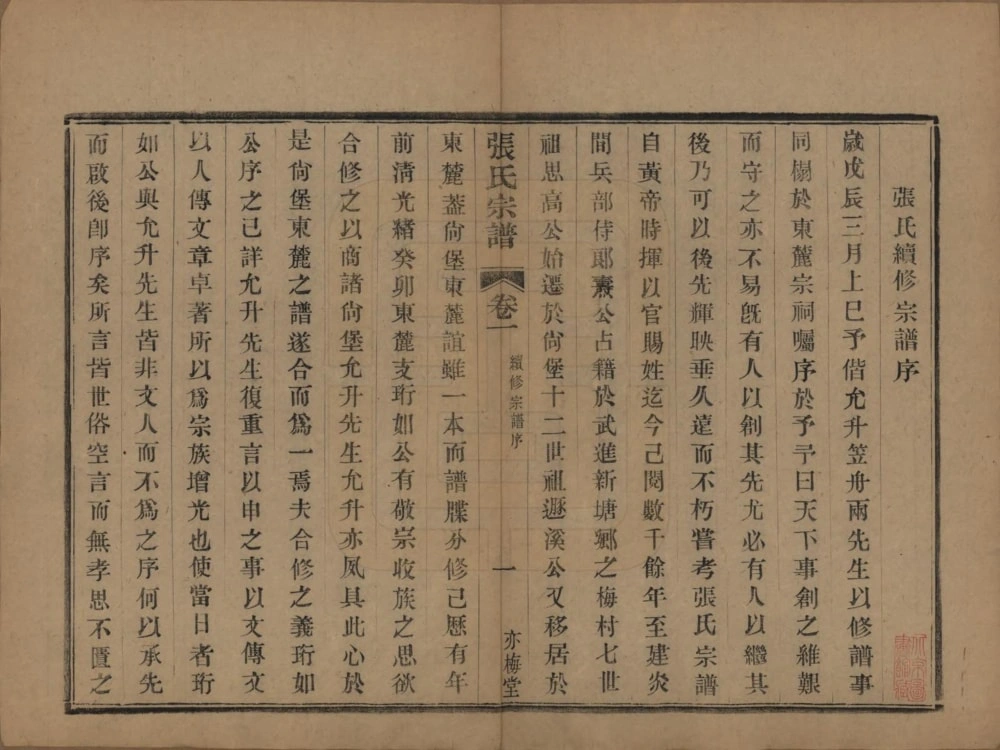 張氏續修宗譜序
歲戊辰三月上巳予偕允升笠舟兩先生以修譜事
同櫊於東麓宗祠囑序於予予曰天下事創之維艱
而守之亦不易旣有人以創其先尤必有人以繼其
後乃可以後先輝映垂久遠而不朽嘗考張氏宗譜
自黃帝時揮以官賜姓迄今已閱數千餘年至建炎
間兵部侍郎燾公占籍於武進新塘鄉之梅村七世
祖思高公始遷於尙堡十二世祖遯溪公又移居於
張氏宗譜 卷一 續修宗譜序 一 亦梅堂
東麓葢尙堡東麓誼雖一本而譜牒分修已歷有年
前淸光緖癸卯東麓支珩如公有敬宗收族之思欲
合修之以商諸尙堡允升先生允升亦夙具此心於
是尙堡東麓之譜遂合而爲一焉夫合修之義珩如
公序之已詳允升先生復重言以申之事以文傳文
以人傳文章卓著所以爲宗族增光也使當日者珩
如公與允升先生皆非文人而不爲之序何以承先
而啟後卽序矣所言皆世俗空言而無孝思不匱之